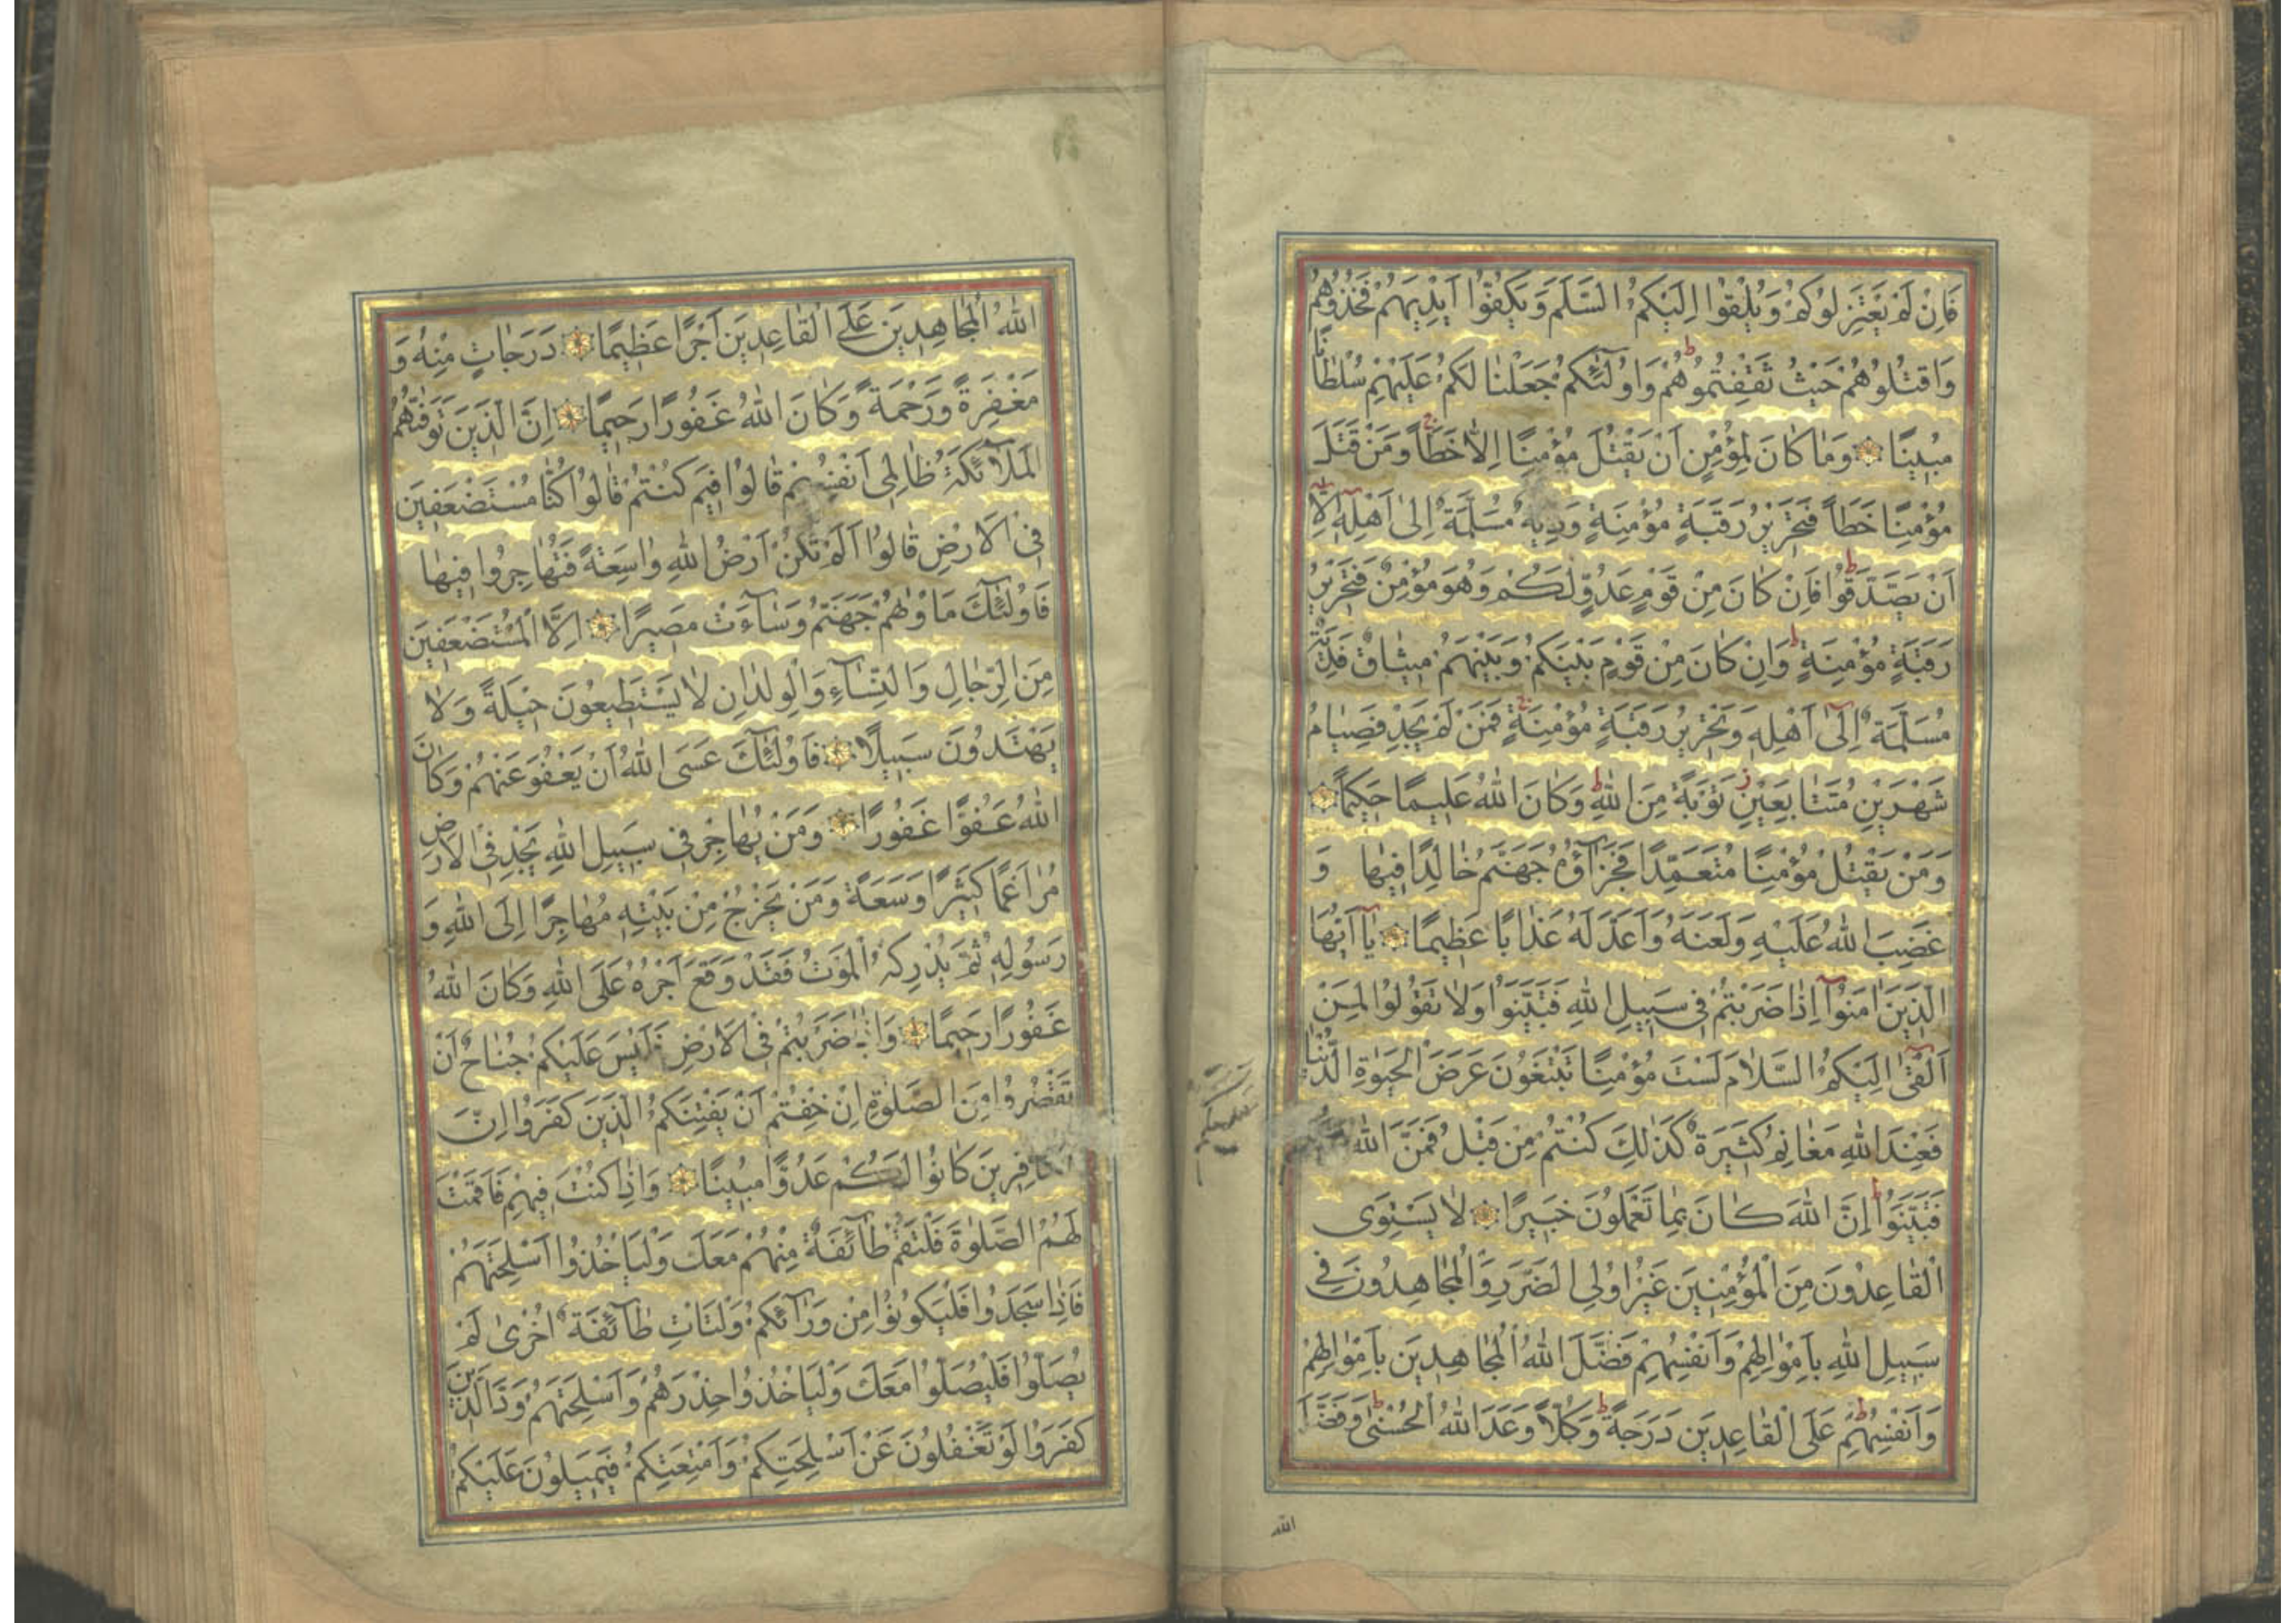 فَاِنْ لَمْ يَعْتَزِلُوكُمْ وَيُلْقُوا اِلَيْكُمُ السَّلَمَ وَيَكُفُّوا اَيْدِيَهُمْ فَخُذُوهُمْ
وَاقْتُلُوهُمْ حَيْثُ ثَقِفْتُمُوهُمْ وَاُولٰئِكُمْ جَعَلْنَا لَكُمْ عَلَيْهِمْ سُلْطَانًا
مُبِينًا وَمَا كَانَ لِمُؤْمِنٍ اَنْ يَقْتُلَ مُؤْمِنًا اِلَّا خَطَاً وَمَنْ قَتَلَ
مُؤْمِنًا خَطَاً فَتَحْرِيْرُ رَقَبَةٍ مُؤْمِنَةٍ وَدِيَةٌ مُسَلَّمَةٌ اِلٰى اَهْلِهِ اِلَّا
اَنْ يَصَّدَّقُوا فَاِنْ كَانَ مِنْ قَوْمٍ عَدُوٍّ لَكُمْ وَهُوَ مُؤْمِنٌ فَتَحْرِيْرُ
رَقَبَةٍ مُؤْمِنَةٍ وَاِنْ كَانَ مِنْ قَوْمٍ بَيْنَكُمْ وَبَيْنَهُمْ مِيثَاقٌ فَدِيَةٌ
مُسَلَّمَةٌ اِلٰى اَهْلِهِ وَتَحْرِيْرُ رَقَبَةٍ مُؤْمِنَةٍ فَمَنْ لَمْ يَجِدْ فَصِيَامُ
شَهْرَيْنِ مُتَتَابِعَيْنِ تَوْبَةً مِنَ اللهِ وَكَانَ اللهُ عَلِيمًا حَكِيمًا
وَمَنْ يَقْتُلْ مُؤْمِنًا مُتَعَمِّدًا فَجَزَآؤُهُ جَهَنَّمُ خَالِدًا فِيهَا وَ
غَضِبَ اللهُ عَلَيْهِ وَلَعَنَهُ وَاَعَدَّ لَهُ عَذَابًا عَظِيمًا يَآ اَيُّهَا
الَّذِيْنَ اٰمَنُوا اِذَا ضَرَبْتُمْ فِي سَبِيلِ اللهِ فَتَبَيَّنُوا وَلَا تَقُولُوا لِمَنْ
اَلْقٰى اِلَيْكُمُ السَّلَامَ لَسْتَ مُؤْمِنًا تَبْتَغُونَ عَرَضَ الْحَيٰوةِ الدُّنْيَا
فَعِنْدَ اللهِ مَغَانِمُ كَثِيرَةٌ كَذٰلِكَ كُنْتُمْ مِنْ قَبْلُ فَمَنَّ اللهُ
فَتَبَيَّنُوا اِنَّ اللهَ كَانَ بِمَا تَعْمَلُونَ خَبِيرًا لَا يَسْتَوِى
الْقَاعِدُونَ مِنَ الْمُؤْمِنِيْنَ غَيْرُ اُولِي الضَّرَرِ وَالْمُجَاهِدُونَ فِي
سَبِيلِ اللهِ بِاَمْوَالِهِمْ وَاَنْفُسِهِمْ فَضَّلَ اللهُ الْمُجَاهِدِيْنَ بِاَمْوَالِهِمْ
وَاَنْفُسِهِمْ عَلَى الْقَاعِدِيْنَ دَرَجَةً وَكُلًّا وَعَدَ اللهُ الْحُسْنٰى وَفَضَّلَ
الله
اللهُ الْمُجَاهِدِيْنَ عَلَى الْقَاعِدِيْنَ اَجْرًا عَظِيمًا دَرَجَاتٍ مِنْهُ وَ
مَغْفِرَةً وَرَحْمَةً وَكَانَ اللهُ غَفُورًا رَحِيمًا اِنَّ الَّذِيْنَ تَوَفّٰىهُمُ
الْمَلَآئِكَةُ ظَالِمِى اَنْفُسِهِمْ قَالُوا فِيْمَ كُنْتُمْ قَالُوا كُنَّا مُسْتَضْعَفِيْنَ
فِى الْاَرْضِ قَالُوا اَلَمْ تَكُنْ اَرْضُ اللهِ وَاسِعَةً فَتُهَاجِرُوا فِيهَا
فَاُولٰئِكَ مَاْوٰىهُمْ جَهَنَّمُ وَسَآءَتْ مَصِيرًا اِلَّا الْمُسْتَضْعَفِيْنَ
مِنَ الرِّجَالِ وَالنِّسَآءِ وَالْوِلْدَانِ لَا يَسْتَطِيعُونَ حِيلَةً وَلَا
يَهْتَدُونَ سَبِيلًا فَاُولٰئِكَ عَسَى اللهُ اَنْ يَعْفُوَ عَنْهُمْ وَكَانَ
اللهُ عَفُوًّا غَفُورًا وَمَنْ يُهَاجِرْ فِى سَبِيلِ اللهِ يَجِدْ فِى الْاَرْضِ
مُرَاغَمًا كَثِيرًا وَسَعَةً وَمَنْ يَخْرُجْ مِنْ بَيْتِهِ مُهَاجِرًا اِلَى اللهِ وَ
رَسُولِهِ ثُمَّ يُدْرِكْهُ الْمَوْتُ فَقَدْ وَقَعَ اَجْرُهُ عَلَى اللهِ وَكَانَ اللهُ
غَفُورًا رَحِيمًا وَاِذَا ضَرَبْتُمْ فِى الْاَرْضِ فَلَيْسَ عَلَيْكُمْ جُنَاحٌ اَنْ
تَقْصُرُوا مِنَ الصَّلٰوةِ اِنْ خِفْتُمْ اَنْ يَفْتِنَكُمُ الَّذِيْنَ كَفَرُوا اِنَّ
الْكَافِرِيْنَ كَانُوا لَكُمْ عَدُوًّا مُبِينًا وَاِذَا كُنْتَ فِيهِمْ فَاَقَمْتَ
لَهُمُ الصَّلٰوةَ فَلْتَقُمْ طَآئِفَةٌ مِنْهُمْ مَعَكَ وَلْيَاْخُذُوا اَسْلِحَتَهُمْ
فَاِذَا سَجَدُوا فَلْيَكُونُوا مِنْ وَرَآئِكُمْ وَلْتَاْتِ طَآئِفَةٌ اُخْرٰى لَمْ
يُصَلُّوا فَلْيُصَلُّوا مَعَكَ وَلْيَاْخُذُوا حِذْرَهُمْ وَاَسْلِحَتَهُمْ وَدَّ الَّذِيْنَ
كَفَرُوا لَوْ تَغْفُلُونَ عَنْ اَسْلِحَتِكُمْ وَاَمْتِعَتِكُمْ فَيَمِيلُونَ عَلَيْكُمْ